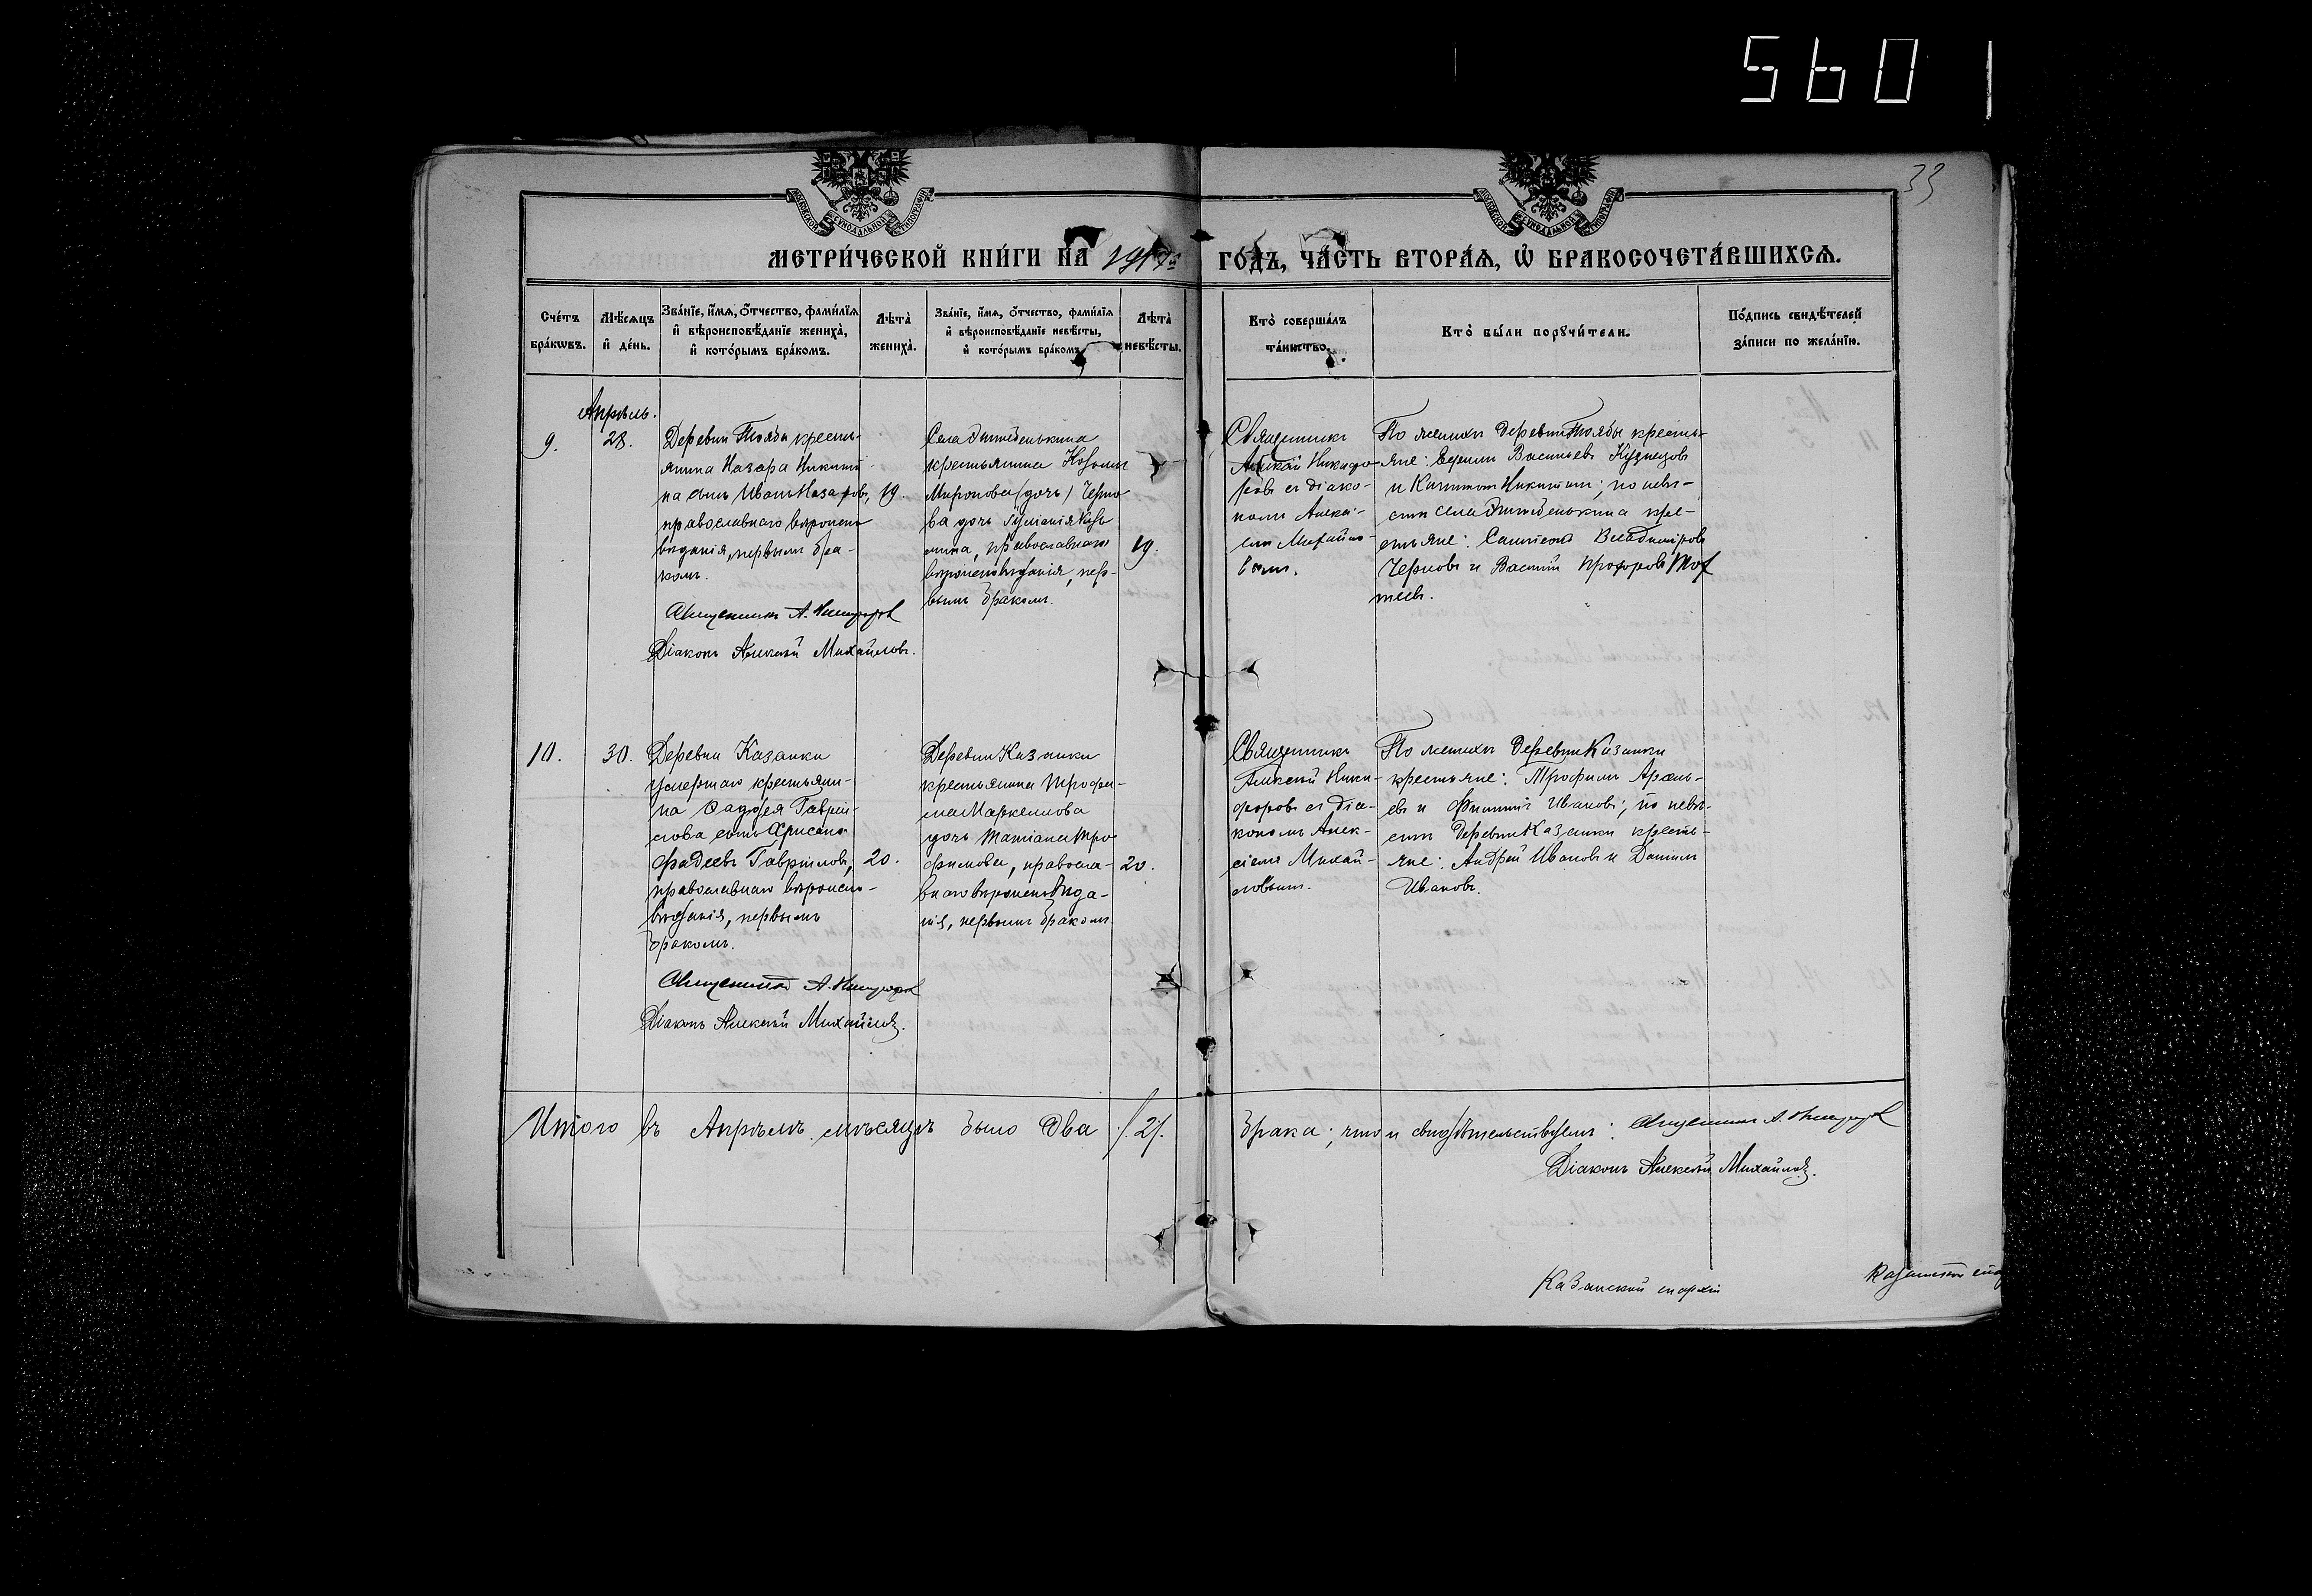 5601
33
МОСКОВСКОЙ СѴНОДАЛЬНОЙ ТИПОГРАФІИ
МОСКОВСКОЙ СѴНОДАЛЬНОЙ ТИПОГРАФІИ
МЕТРИ́ЧЕСКОЙ КНИ́ГИ НА 1917й ГО́ДЪ, ЧА́СТЬ ВТОРА́Я, Ѡ БРАКОСОЧЕТА́ВШИХСЯ.
Сче́тъ
бра́кѡвъ.
Мѣ́сяцъ
и҆ де́нь.
Зва́нїе, и҆́мя, ѻ҆́тчество, фами́лїя
и҆ вѣроисповѣ́данїе жениха̀,
и҆ кото́рымъ бра́комъ.
Лѣта̀
жениха̀.
Зва́нїе, и҆́мя, ѻ҆́тчество, фами́лїя
и҆ вѣроисповѣ́данїе невѣ́сты,
и҆ кото́рымъ бра́комъ.
Лѣта̀
невѣ́сты.
Кто̀ соверша́лъ
та́инство.
Кто̀ бы́ли порꙋчи́тели.
По́дпись свидѣ́телей
за́писи по жела́нїю.
Апрѣль.
9.
28.
Деревни Тоябы кресть-
янина Назара Никити-
на сынъ Иванъ Назаровъ,
православнаго вѣроиспо-
вѣданія, первымъ бра-
комъ.
Священникъ А. Никифоровъ
Діаконъ Алексѣй Михайловъ.
19.
Села
крестьянина
Миронова (дочь) Черно-
ва дочь
православнаго
вѣроисповѣданія, пер-
вымъ бракомъ.
19.
Священникъ
Алексѣй Никифо-
ровъ съ діако-
номъ Алекс-
Михайло-
вымъ.
По женихѣ деревни Тоябы кресть-
яне: Ефимъ Васильевъ Кузнецовъ
и Никитинъ; по невѣ-
стѣ села кре-
стьяне: Владиміровъ
Черновъ и Василій Прохоровъ
10.
30.
Деревни Казанки
умершаго крестьяни-
на Ѳаддея Гаврі-
лова сынъ Хрисанѳ
Фадеевъ Гавріловъ,
православнаго вѣроиспо-
вѣданія, первымъ
бракомъ.
Священникъ А. Никифоровъ
Діаконъ Алексѣй Михайловъ.
20.
Деревни Казанки
крестьянина Трофи-
ма Маркеллова
дочь Татіана Тро-
фимова, правосла-
внаго вѣроисповѣда-
нія, первымъ бракомъ
20.
Священникъ
Алексѣй Ники-
форовъ съ діа-
кономъ Алек-
сіемъ Михай-
ловымъ.
По женихѣ деревни Казанки
крестьяне: Трофимъ Арсень-
евъ и Филиппъ Ивановъ; по невѣ-
стѣ деревни Казанки кресть-
яне: Андрей Ивановъ и Даніилъ
Ивановъ.
Итого въ Апрѣлѣ мѣсяцѣ было два /2/. брака; что и свидѣтельствуемъ: Священникъ А. Никифоровъ
Діаконъ Алексѣй Михайловъ.
Казанской епархіи
Казанской